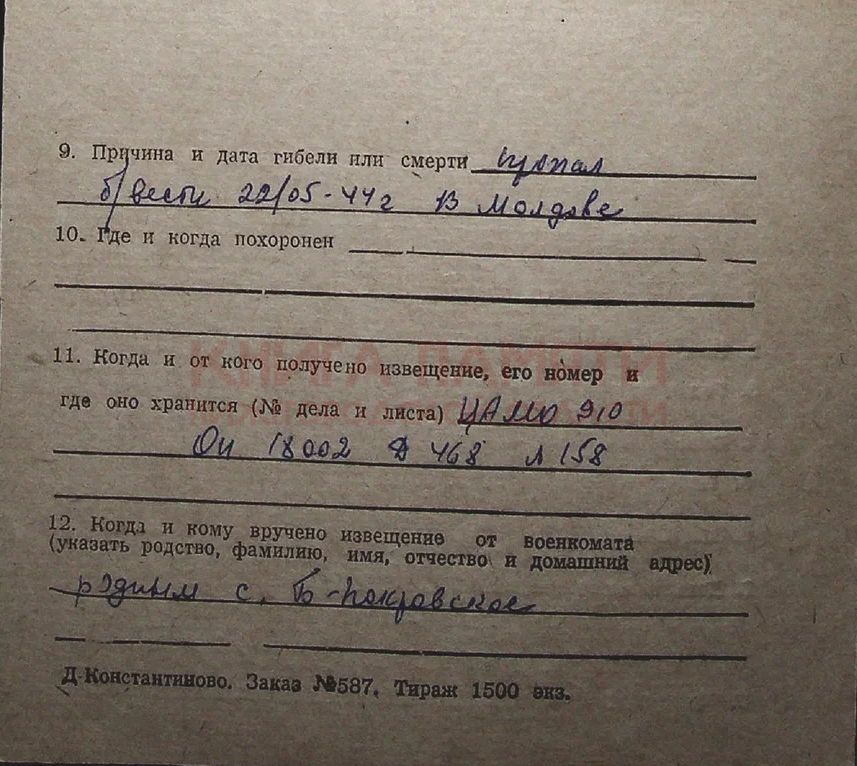 9. Причина и дата гибели или смерти пропал
б/вести 22/05-44г в Молдове
10. Где и когда похоронен
КНИГА ПАМЯТИ
11. Когда и от кого получено извещение, его номер и
где оно хранится (№ дела и листа) ЦАМО
Оп 18002 Д 468 л 158
12. Когда и кому вручено извещение от военкомата
(указать родство, фамилию, имя, отчество и домашний адрес)
родным с. Б-Покровское
Д-Константиново. Заказ №587. Тираж 1500 экз.